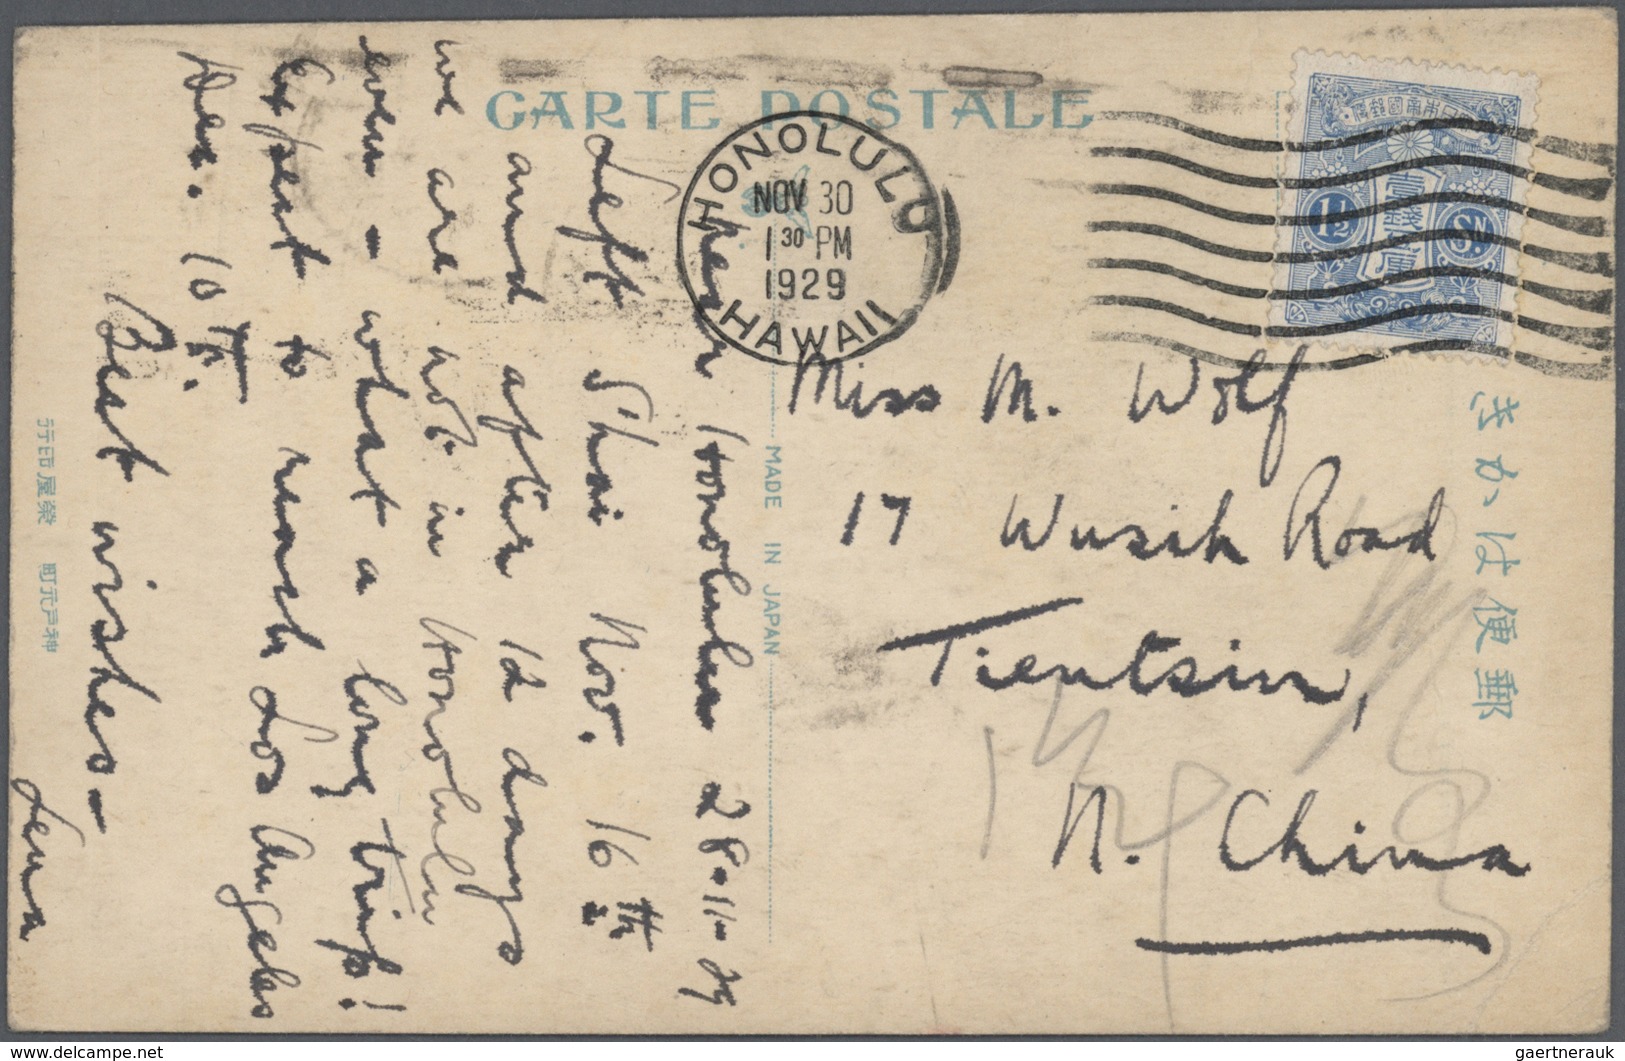 CARTE POSTALE
HONOLULU
NOV 30
1 30 PM
1929
HAWAII
大日本帝國郵便
1½
SN.
きかは便郵
MADE IN JAPAN
行印屋榮 町元戸神
Near Honolulu 28-11-29
Left Shai Nov. 16th
and after 12 days
we are not in Honolulu
even - what a long trip!
Expect to reach Los Angeles
Dec. 10th.
Best wishes -
Lena
Miss M. Wolf
17 Wusih Road
Tientsin,
N. China
delcampe.net
gaertnerauk